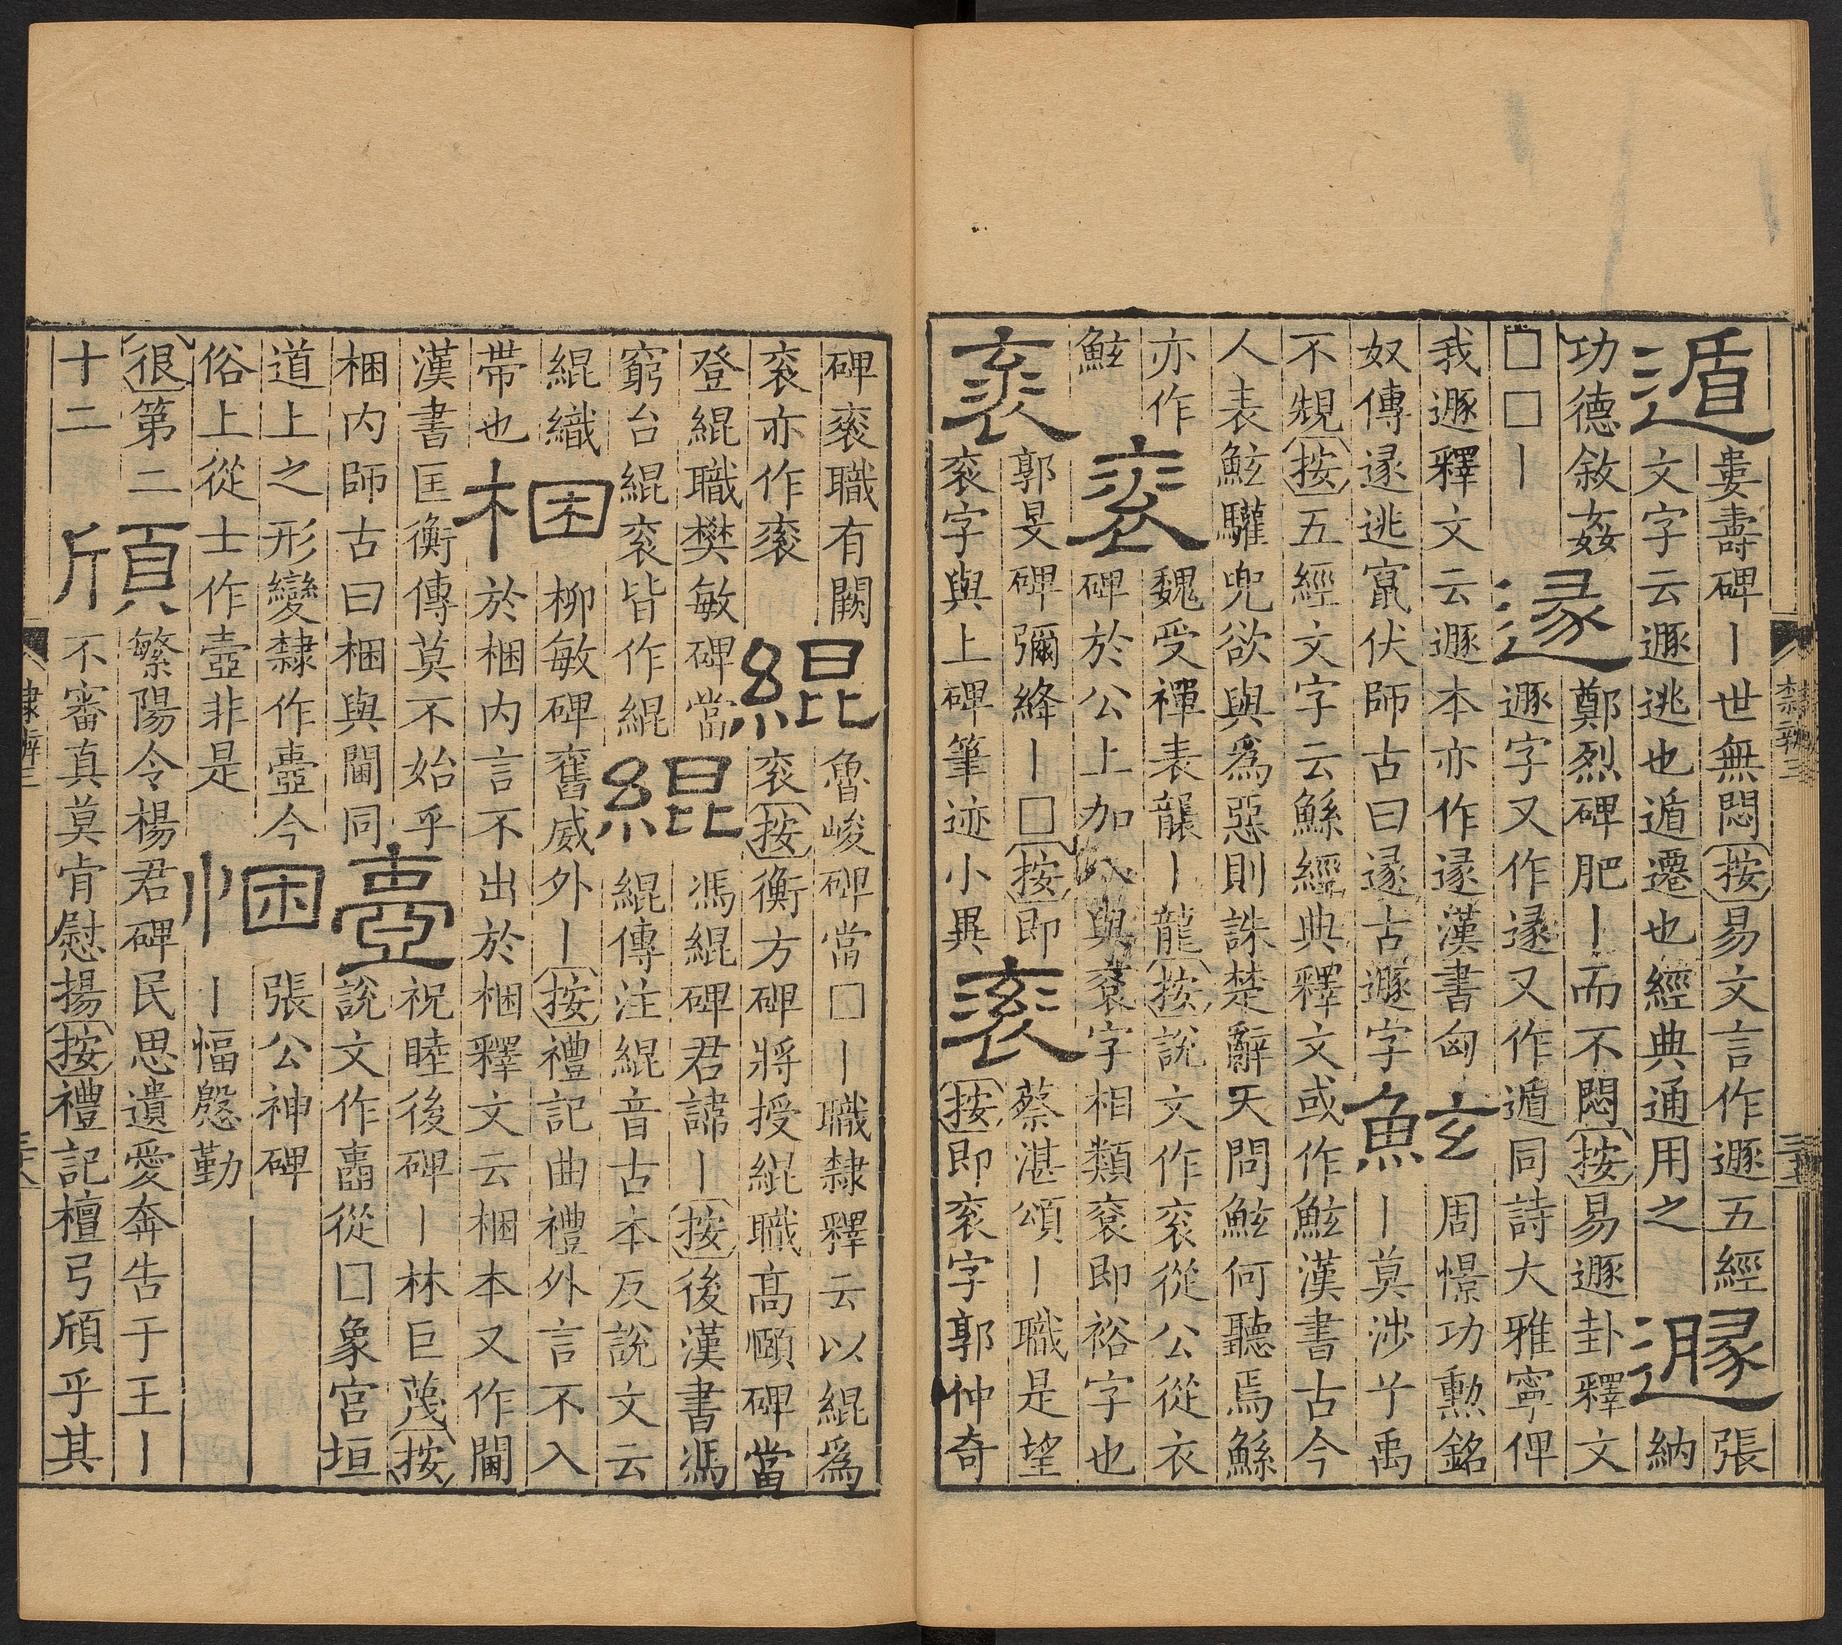 遁
婁壽碑丨世無悶按易文言作遯五經
文字云遯逃也遁遷也經典通用之
遯
張
納
功德敘姦
□□丨
遂
鄭烈碑肥丨而不悶按易遯卦釋文
遯字又作遂又作遁同詩大雅寧俾
我遯釋文云遯本亦作遂漢書匈
奴傳遂逃竄伏師古曰遂古遯字
鮌
周憬功勲銘
丨莫涉兮禹
不規按五經文字云鯀經典釋文或作鮌漢書古今
人表鮌驩兜欲與爲惡則誅楚辭天問鮌何聽焉鯀
亦作
鮌
衮
魏受禪表襲丨龍按說文作衮從公從衣
碑於公上加八與袞字相類袞即裕字也
衮
郭旻碑彌絳丨□按即
衮字與上碑筆迹小異
衮
蔡湛頌丨職是望
按即衮字郭仲奇
隸辨三
碑衮職有闕
衮亦作衮
緄
魯峻碑當□丨職隸釋云以緄爲
衮按衡方碑將授緄職高頤碑當
登緄職樊敏碑當
窮台緄衮皆作緄
緄
馮緄碑君諱丨按後漢書馮
緄傳注緄音古本反說文云
緄織
帶也
梱
柳敏碑奮威外丨按禮記曲禮外言不入
於梱内言不出於梱釋文云梱本又作閫
漢書匡衡傳莫不始乎
梱内師古曰梱與閫同
壼
祝睦後碑丨林巨蔑按
說文作壼從囗象宮垣
道上之形變隸作壼今
俗上從士作壺非是
悃
張公神碑
丨愊慇勤
很第二
十二
頎
繁陽令楊君碑民思遺愛奔告于王丨
不審真莫肯慰揚按禮記檀弓頎乎其
隸辨三